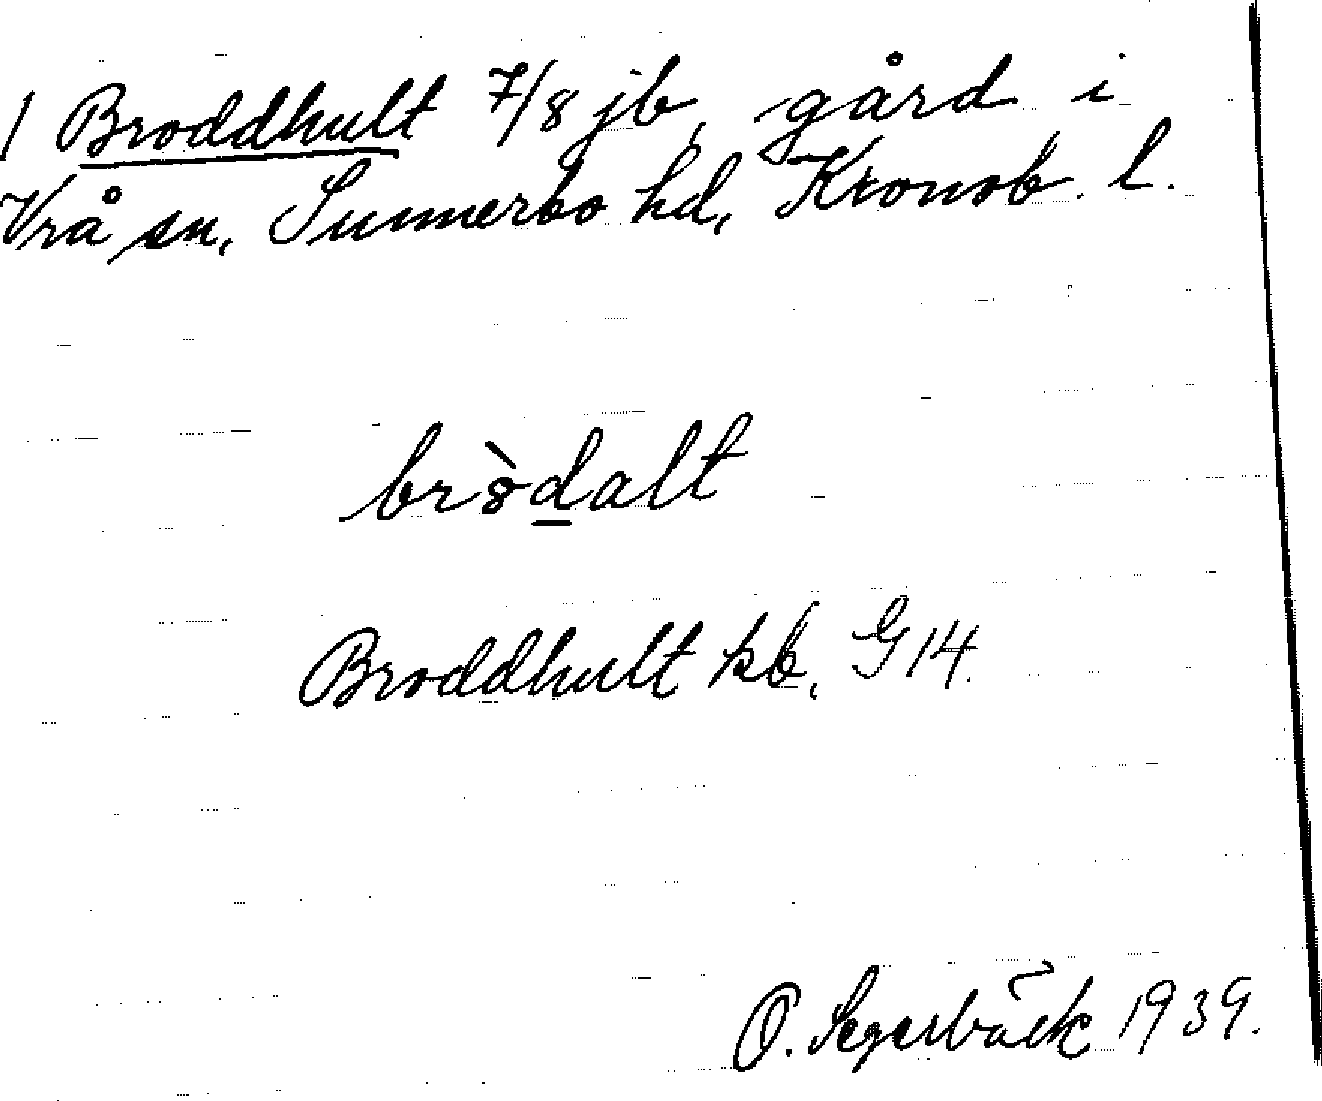 / Broddhult 7/8 jb, gård i
Vrå sn, Sunnerbo hd, Kronob. l.
bròdalt
Broddhult kb, G14.
O. Segerbäck 1939.